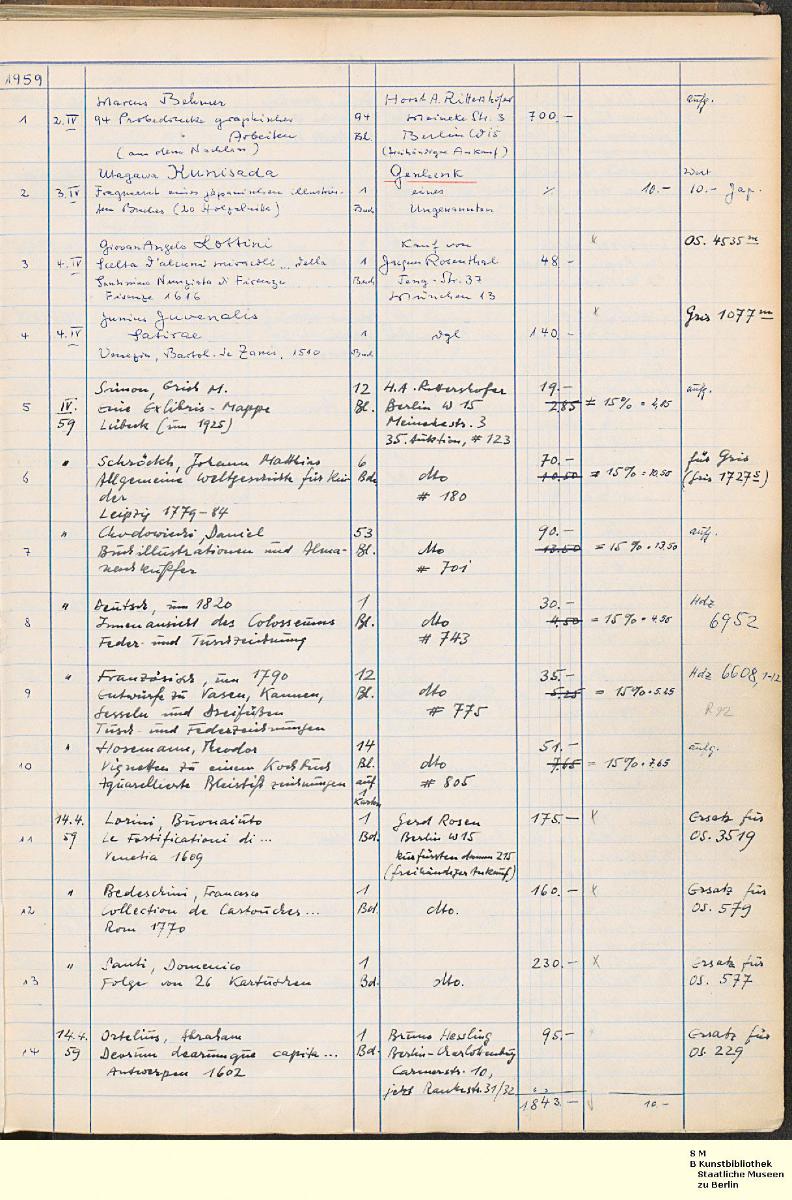 1959
1 2.IV Marcus Behmer 94 Horst A. Rittershofer 700.- aufg.
94 Probedrucke graphischer Bl. Meineke Str. 3
" Arbeiten Berlin W15
(aus dem Nachlass) (freihändiger Ankauf)
2 3.IV Utagawa Kunisada 1 Geschenk ./. 10.- Wert
Fragment eines japanischen illustrier- Buch eines 10.- Jap.
ten Buches (20 Holzschnitte) Ungenannten
3 4.IV Giovan Angelo Lottini 1 Kauf von 48.- x OS. 4535 m
Scelta d'alcuni miracoli... della Buch Jacques Rosenthal
Santissima Nunziata di Firenze Jeng-Str. 37
Firenze 1616 München 13
4 4.IV Junius Juvenalis 1 dgl 140.- x Gris 1077 m
Satirae Buch
Venezia, Bartol. de Zanis, 1510
5 IV. 59 Simon, Erich M. 12 H.A. Rittershofer 19.- aufg.
eine Exlibris-Mappe Bl. Berlin W 15 2,85 = 15% = 2,85
Lübeck (um 1925) Meinekestr. 3
35. Auktion, # 123
6 " Schröckh, Johann Matthias 6 dto 70.- für Gris
Allgemeine Weltgeschichte für Kin- Bde # 180 10,50 = 15% = 10,50 (Gris 1727 s)
der
Leipzig 1779-84
7 " Chodowiecki, Daniel 53 dto 90.- aufg.
Buchillustrationen und Alma- Bl. # 701 13.50 = 15% = 13,50
nachkupfer
8 " Deutsch, um 1820 1 dto 30.- Hdz
Innenansicht des Colosseums Bl. # 743 4,50 = 15% = 4,50 6952
Feder- und Tuschzeichnung
9 " Französisch, um 1790 12 dto 35.- Hdz 6608, 1-12
Entwürfe zu Vasen, Kannen, Bl. # 775 5,25 = 15% = 5.25
Sesseln und Dreifüßen
Tusch- und Federzeichnungen
10 " Hosemann, Theodor 14 dto 51.- aufg.
Vignetten zu einem Kochbuch Bl. # 805 7,65 = 15% = 7,65
Aquarellierte Bleistiftzeichnungen auf
1 Karton
11 14.4. 59 Lorini, Buonaiuto 1 Gerd Rosen 175.- x Ersatz für
Le Fortificationi di ... Bd. Berlin W15 OS. 3519
Venetia 1609 Kurfürstendamm 215
(freihändiger Ankauf)
12 " Bedeschini, Francesco 1 dto. 160.- x Ersatz für
Collection de Cartouches ... Bd. OS. 579
Rom 1770
13 " Santi, Domenico 1 dto. 230.- x Ersatz für
Folge von 26 Kartuschen Bd. OS. 577
14 14.4. 59 Ortelius, Abraham 1 Bruno Hessling 95.- Ersatz für
Deorum dearumque capita ... Bd. Berlin-Charlottenburg OS. 229
Antwerpen 1602 Carmerstr. 10,
jetzt Rankestr. 31/32
1843.- 10.-
S M
B Kunstbibliothek
Staatliche Museen
zu Berlin